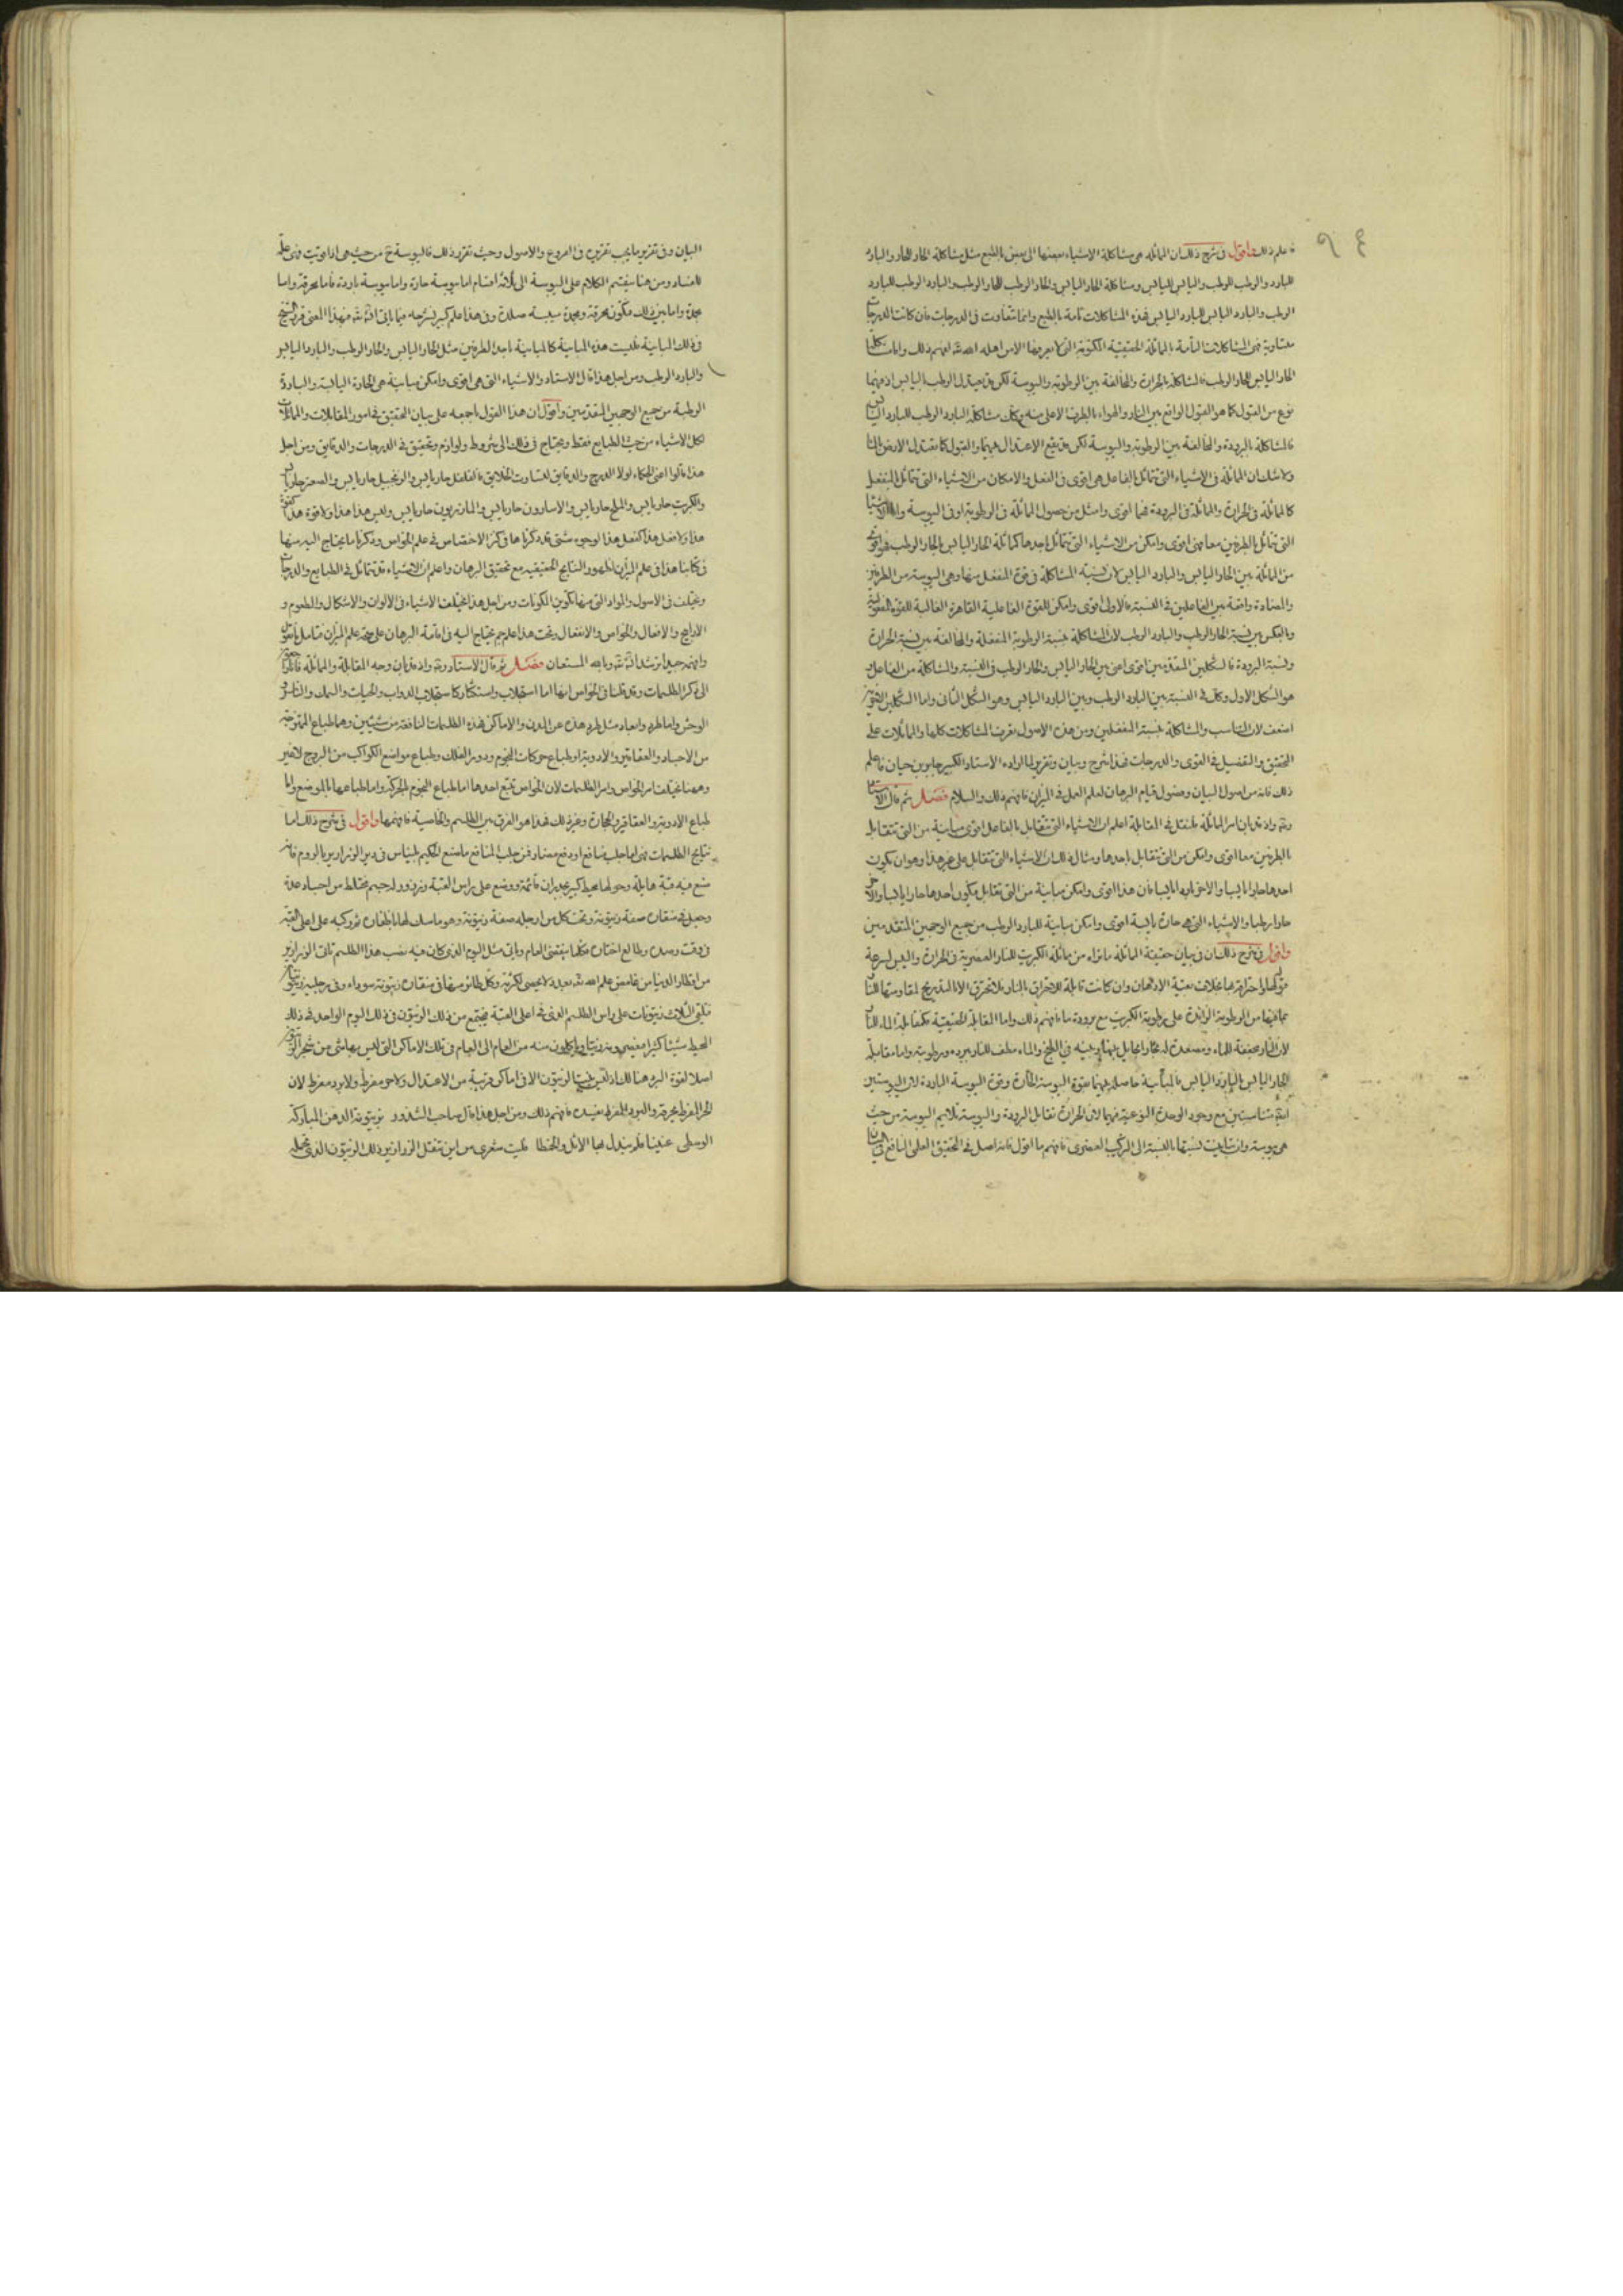 فاعلم ذلك واقول فى شرح ذلك ان المماثله هى مشاكلة الاشياء بعضها الى بعض بالطبع مثل مشاكلة الحار للحار والبارد
للبارد والرطب للرطب واليابس لليابس ومشاكلة الحار اليابس والحار الرطب للحار الرطب والبارد الرطب للبارد
الرطب والبارد اليابس للبارد اليابس فهذه المشاكلات تامة بالطبع وانما تتفاوت فى الدرجات فان كانت الدرجات
متساوية فهى المشاكلات التامة بالمماثلة الحقيقية المكتومة التى لا يعرفها الا من اهله الله لفهم ذلك واما مشاكلة
الحار اليابس للحار الرطب فالمشاكلة بالحرارة والمخالفة بين الرطوبة واليبوسة لكن قد يعتدل الرطب باليابس اذ بينهما
نوع من القبول كما هو القبول الواقع بين النار والهواء بالطرف الاعلى منه وكذلك مشاكلة البارد الرطب للبارد اليابس
فالمشاكلة بالبرودة والمخالفة بين الرطوبة واليبوسة لكن قد يقع الاعتدال بينهما والقبول كما تعتدل الارض بالماء
ولا شك ان المماثلة فى الاشياء التى تتماثل بالفاعل هى اقوى فى الفعل والامكان من الاشياء التى تتماثل بالمنفعل
كالمماثلة فى الحرارة والمماثلة فى البرودة فهما اقوى وامثل من حصول المماثلة فى الرطوبة او فى اليبوسة واما الاشياء
التى تتماثل بالطرفين معا فهى اقوى وامكن من الاشياء التى تتماثل باحدها كمماثلة الحار اليابس بالحار الرطب فهو اقوى
من المماثلة بين الحار اليابس والبارد اليابس لان نسبة المشاكلة فى قوة المنفعل منها وهى اليبوسة من الطرفين
والمضادة واقعة بين الفاعلين فى النسبة فالاولى اقوى وامكن للقوة الفاعلية القاهرة الغالبة للقوة المفعولية
وبالعكس بين نسبة الحار الرطب والبارد الرطب لان المشاكلة بنسبة الرطوبة المنفعلة والمخالفة بين نسبة الحرارة
ونسبة البرودة فالشكلين المتقدمين اقوى اعنى بين الحار اليابس والحار الرطب فى النسبة والمشاكلة من الفاعل و
هو الشكل الاول وكذلك فى النسبة بين البارد الرطب وبين البارد اليابس وهو الشكل الثانى واما الشكلين الاخيرين
اضعف لان التناسب والمشاكلة بنسبة المنفعلين ومن هذه الاصول تعرف المشاكلات كلها والمماثلات على
التحقيق والتفصيل فى القوى والدرجات فهذا شرح وبيان وتقرير لما اراده الاستاد الكبير جابر بن حيان فاعلم
ذلك فانه من اصول البيان وفصول قيام البرهان لعلم العمل فى الميزان فافهم ذلك والسلام فصل ثم قال الاستاد
واذ قد بان امر المماثلة فلنقل فى المقابلة اعلم ان الاشياء التى تتقابل بالفاعل اقوى مباينة من التى تتقابل
بالطرفين معا اقوى وامكن من التى تتقابل باحدها ومثال ذلك ان الاشياء التى تتقابل على غير هذا وهو ان يكون
احدها حارا يابسا والاخر باردا يابسا فان هذا اقوى وامكن مباينة من التى تتقابل فيكون احدها حارا يابسا والاخر
حارا رطبا والاشياء التى هى حارة يابسة اقوى وامكن مباينة للبارد الرطب من جميع الوجهين المتقدمين
واقول فى شرح ذلك ان فى بيان حقيقة المماثلة ما نراه من مماثلة الكبريت للنار العنصرية فى الحرارة واليبس لسرعة
قبولها واحتراقها بخلاف بقية الادهان وان كانت قابلة للاحتراق بالنار فلا تحترق الا بالتدريج لمقاومتها للنار
بما فيها من الرطوبة الزائدة على رطوبة الكبريت مع برودة ما فافهم ذلك واما المقابلة الحقيقية فكمقابلة الماء للنار
لان النار مجففة للماء ومصعدة له بخارا وللماء مطف للنار ببرده ورطوبته واما مقابلة
الحار اليابس بالبارد اليابس فالمباينة حاصلة بينهما بقوة اليبوسة الحارة وقوة اليبوسة الباردة لان اليبوستين
متناسبتين مع وجود الوحدة النوعية فيهما لان الحرارة تقابل البرودة واليبوسة تلايم اليبوسة من حيث
هى يبوسة وان تباينت نسبتها بالنسبة الى التركيب العنصرى فافهم ما اقول فانه اصل فى التحقيق العلمى النافع
البيان وفى تقرير ما يجب تقريره فى الفروع والاصول وحيث تقرر ذلك فاليبوسة من حيث هى اذا قويت فهى علة
للفساد ومن هنا ينقسم الكلام على اليبوسة الى ثلاثة اقسام اما يبوسة حارة واما يبوسة باردة فاما محرقة واما
مجمدة واما بين ذلك فتكون محرقة ومجمدة ميبسة صلدة وفى هذا علم كبير نشرحه فيما ياتى ان شاء الله فهذا المعنى
فى ذلك المباينة فليست هذه المباينة كالمباينة باحد الطرفين مثل الحار اليابس والحار الرطب والبارد اليابس
والبارد الرطب ومن اجل هذا قال الاستاد والاشياء التى هى اقوى وامكن مباينة هى الحارة اليابسة والباردة
الرطبة من جميع الوجهين المتقدمين واقول ان هذا القول باجمعه على بيان التحقيق فى امور المقابلات والمماثلات
لكل الاشياء من حيث الطبايع فقط ويحتاج فى ذلك الى شروط ولوازم وتحقيق فى الدرجات والدقايق ومن اجل
هذا قالوا اعنى الحكماء لولا الدرج والدقايق لتساوت الخلايق فالفلفل حار يابس والزنجبيل حار يابس والسعتر حار يابس
والكبريت حار يابس والملح حار يابس والاسارون حار يابس والمازريون حار يابس وليس هذا هذا ولا قوة هذا كقوة
هذا ولا فعل هذا كفعل هذا لوجوه شتى قد ذكرناها فى كنز الاختصاص فى علم الخواص وذكرنا ما يحتاج اليه منها
فى كتابنا هذا فى علم الميزان لظهور النتايج الحقيقية مع تحقيق البرهان واعلم ان الاشياء قد تتماثل فى الطبايع والدرجات
وتختلف فى الاصول والمواد التى منها تكوين المكونات ومن اجل هذا تختلف الاشياء فى الالوان والاشكال والطعوم و
الارايح والافعال والخواص والانفعال وتحت هذا علم جم يحتاج اليه فى اقامة البرهان على صحة علم الميزان فتامل ما نقول
وافهم جيدا ترشد ان شاء الله وبالله المستعان فصل ثم قال الاستاد واذ قد بان وجه المقابلة والمماثلة
الى ذكر الطلسمات وقد قلنا فى الخواص انها اما استجلاب واستكثار كاستجلاب الدواب والحيات والسمك والناس و
الوحش واما طرد وابعاد مثل طرد هذه عن المدن والاماكن فهذه الطلسمات النافعة من شيئين وهما طباع الممتزجة
من الاجساد والعقاقير والادوية او طباع حركات النجوم ودور الفلك وطباع مواضع الكواكب من البروج لا غير
وههنا يختلف امر الخواص وامر الطلسمات لان الخواص تتبع احدها اما طباع النجوم المحركة واما طباعها بالموضع واما
طباع الادوية والعقاقير والحجارة وغير ذلك فهذا هو الفرق بين الطلسم والخاصية فافهمها واقول فى شرح ذلك اما
نتايج الطلسمات فهى اما جلب منافع او دفع مضار فمن جلب المنافع ما صنع الحكيم بليناس فى دير الزرازير بالروم فانه
صنع فيه قبة هايلة وحولها محيط كبير بجدران قايمة ووضع على راس القبة زرزور له جسم مختلط من اجساد عدة
وجعل فى منقاره صفة زيتونة وتحت كل من ارجله صفة زيتونة وهو ماسك لها باظفاره ثم ركبه على اعلى القبة
فى وقت رصده وطالع اختاره فكلما ينقضى العام وياتى مثل اليوم الذى كان فيه نصب هذا الطلسم تاتى الزرازير
من اقطار الدنيا من غامض علم الله بعدد لا يحصى لكثرته وكل طائر منها فى منقاره زيتونة سوداء وفى رجليه زيتونتان
فتلقى الثلاث زيتونات على راس الطلسم الذى فى اعلى القبة فيجتمع من ذلك الزيتون فى ذلك اليوم الواحد فى ذلك
المحيط شيئا كثيرا فيعصرونه زيتا وياكلون منه من العام الى العام فى تلك الاماكن التى ليس بها شى من شجر الزيتون
اصلا لقوة البرد هناك اذ ليس ينبت الزيتون الا فى اماكن قريبة من الاعتدال ولا حر مفرط ولا برد مفرط لان
الحر المفرط يحرقه والبرد المفرط يفسده فافهم ذلك ومن اجل هذا قال صاحب الشذور بزيتونة الدهن المباركة
الوسطى غنينا فلم نبدل بها الاثل والخمطا فليت شعرى من اين تنقل الزرازير ذلك الزيتون الذى تحمله